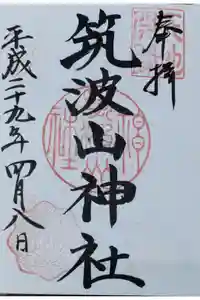 奉拝
筑波山神社
平成二十九年四月八日